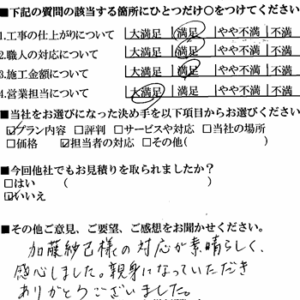 ■下記の質問の該当する箇所にひとつだけ○をつけてください
1.工事の仕上がりについて 大満足 満足 やや不満 不満
2.職人の対応について 大満足 満足 やや不満 不満
3.施工金額について 大満足 満足 やや不満 不満
4.営業担当について 大満足 満足 やや不満 不満
■当社をお選びになった決め手を以下項目からお選びください
☑プラン内容 □評判 □サービスや対応 □当社の場所
□価格 ☑担当者の対応 □その他( )
■今回他社でもお見積りを取られましたか?
□はい ( )
☑いいえ
■その他ご意見、ご要望、ご感想をお聞かせください。
加藤紗己様の対応が素晴らしく、
感心しました。親身になっていただき
ありがとうございました。